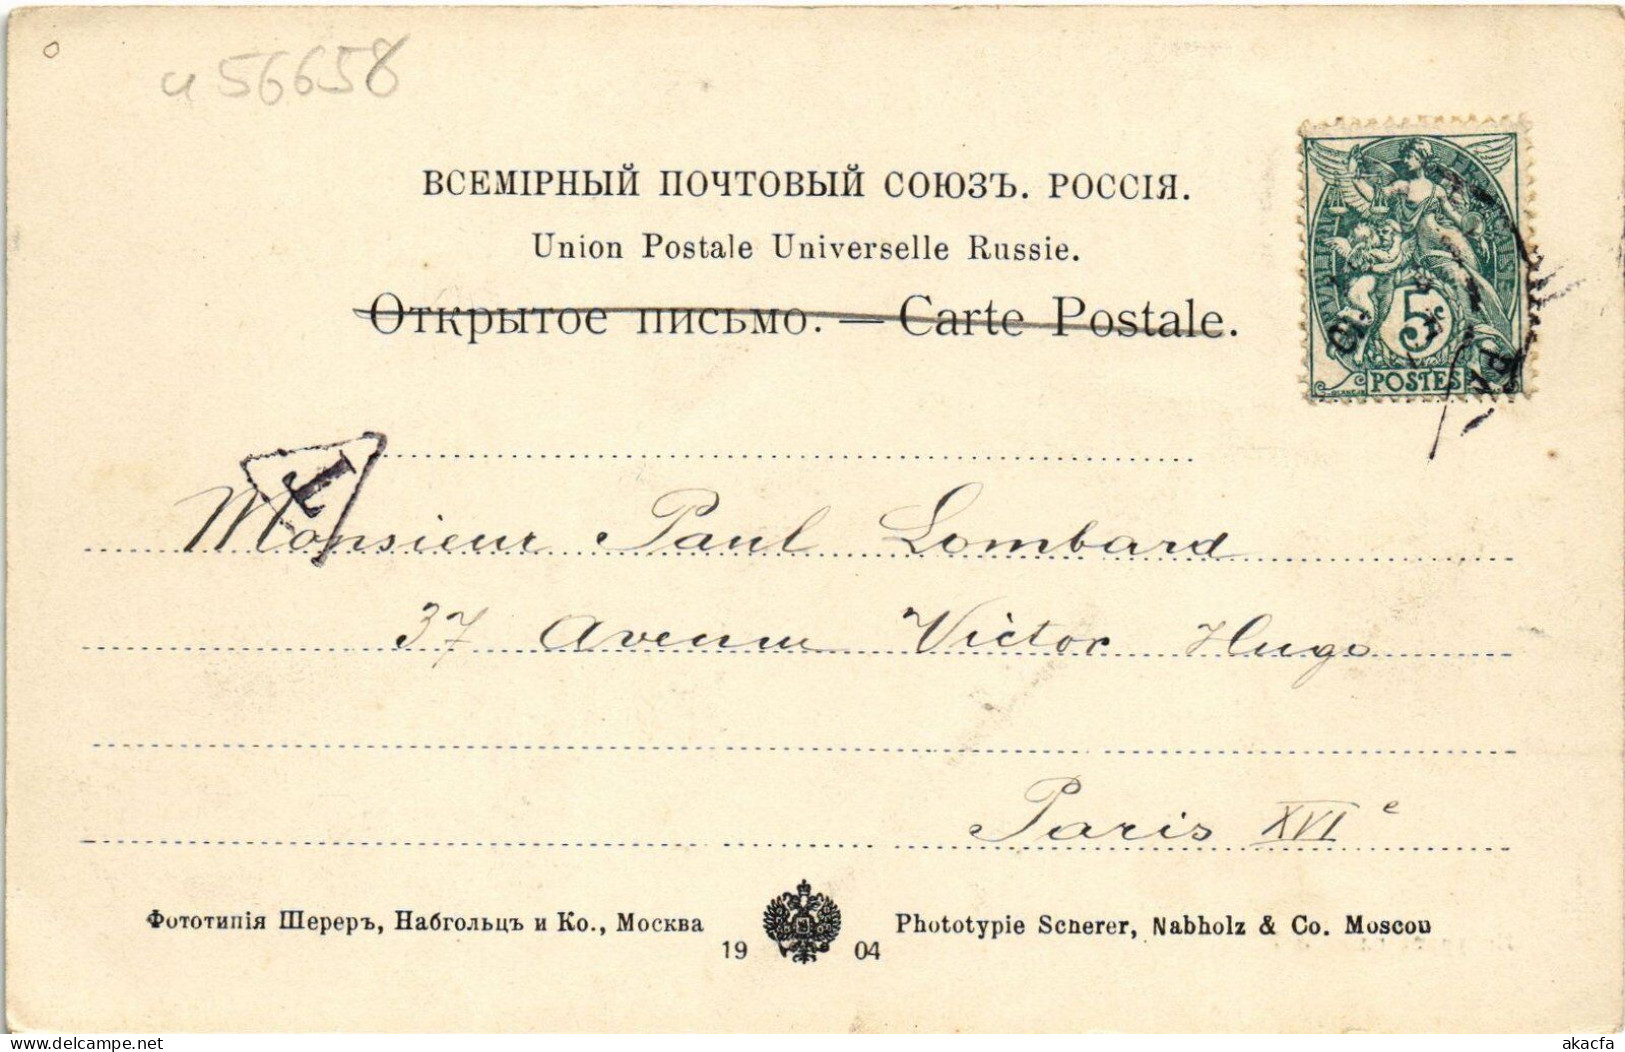 56658
ВСЕМІРНЫЙ ПОЧТОВЫЙ СОЮЗЪ. РОССІЯ.
Union Postale Universelle Russie.
Открытое письмо. — Carte Postale.
5
POSTES
T
Monsieur Paul Lombard
37 Avenue Victor Hugo
Paris XVI e
Фототипія Шереръ, Набгольцъ и Ко., Москва
19 04
Phototypie Scherer, Nabholz & Co. Moscou
akacfa